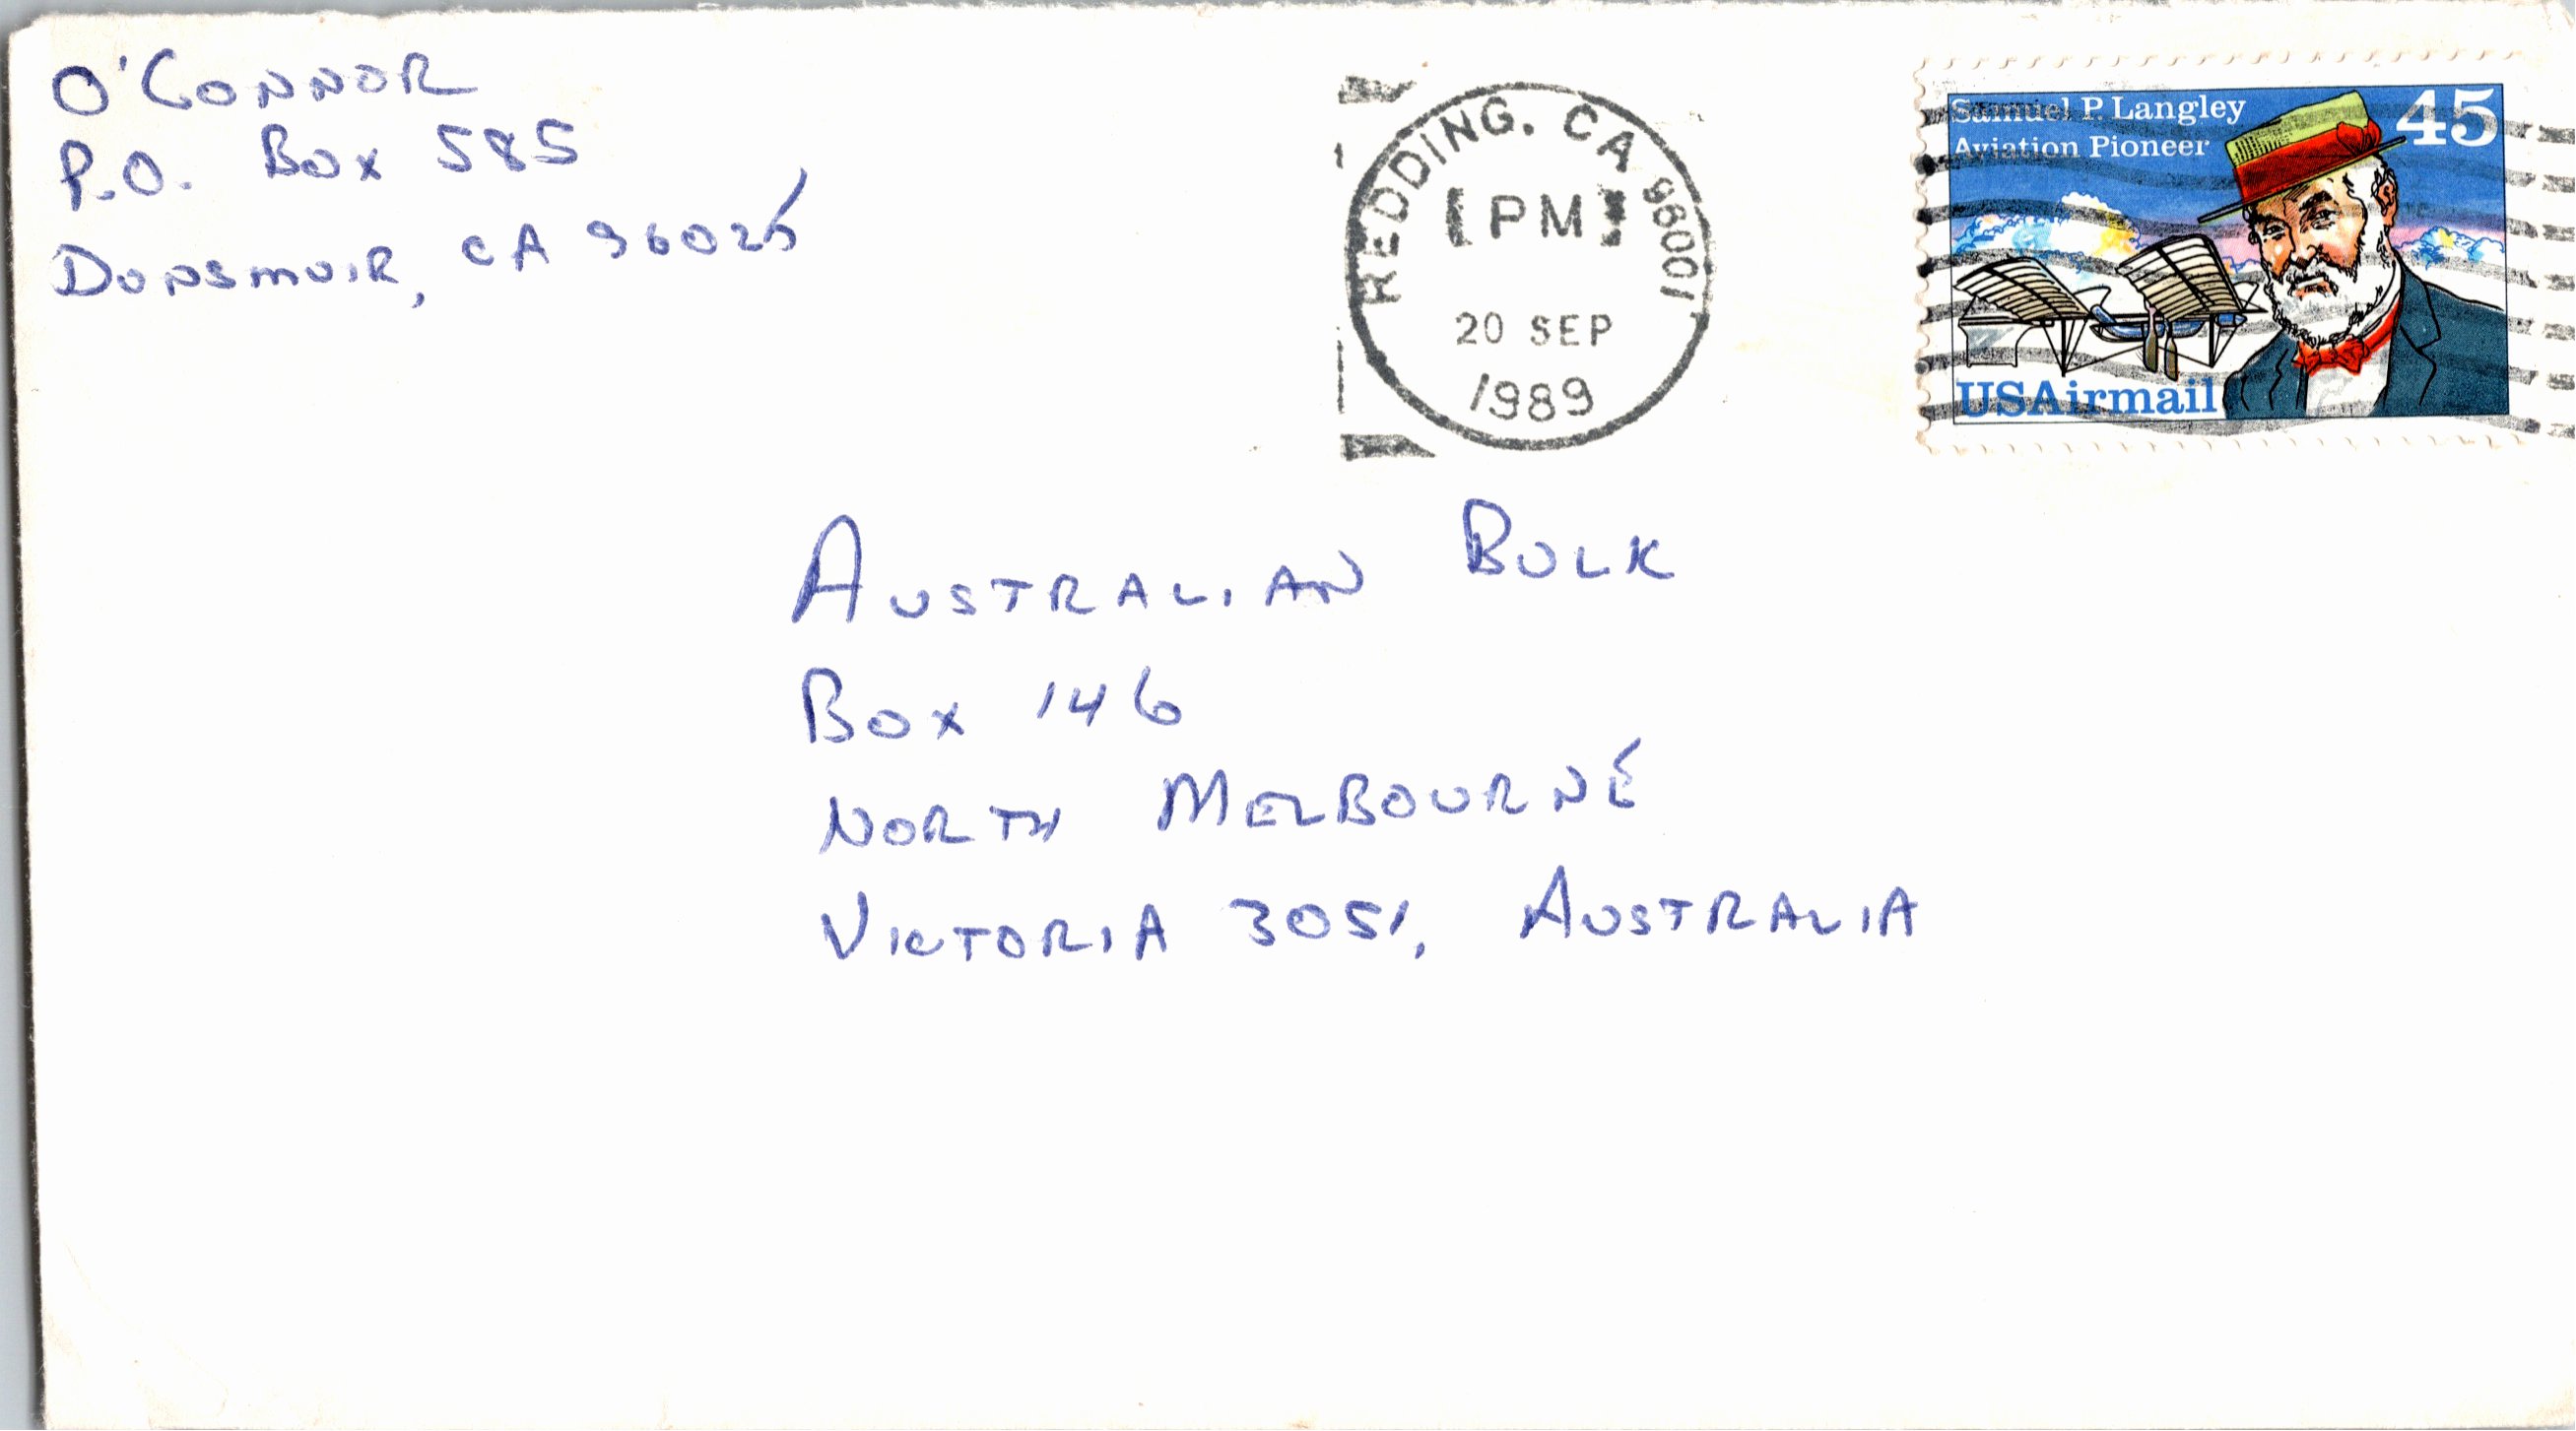 O'CONNOR
P.O. BOX 585
DUNSMUIR, CA 96025
REDDING, CA 96001
[PM]
20 SEP
1989
Samuel P. Langley
Aviation Pioneer
45
USAirmail
AUSTRALIAN BULK
BOX 146
NORTH MELBOURNE
VICTORIA 3051, AUSTRALIA